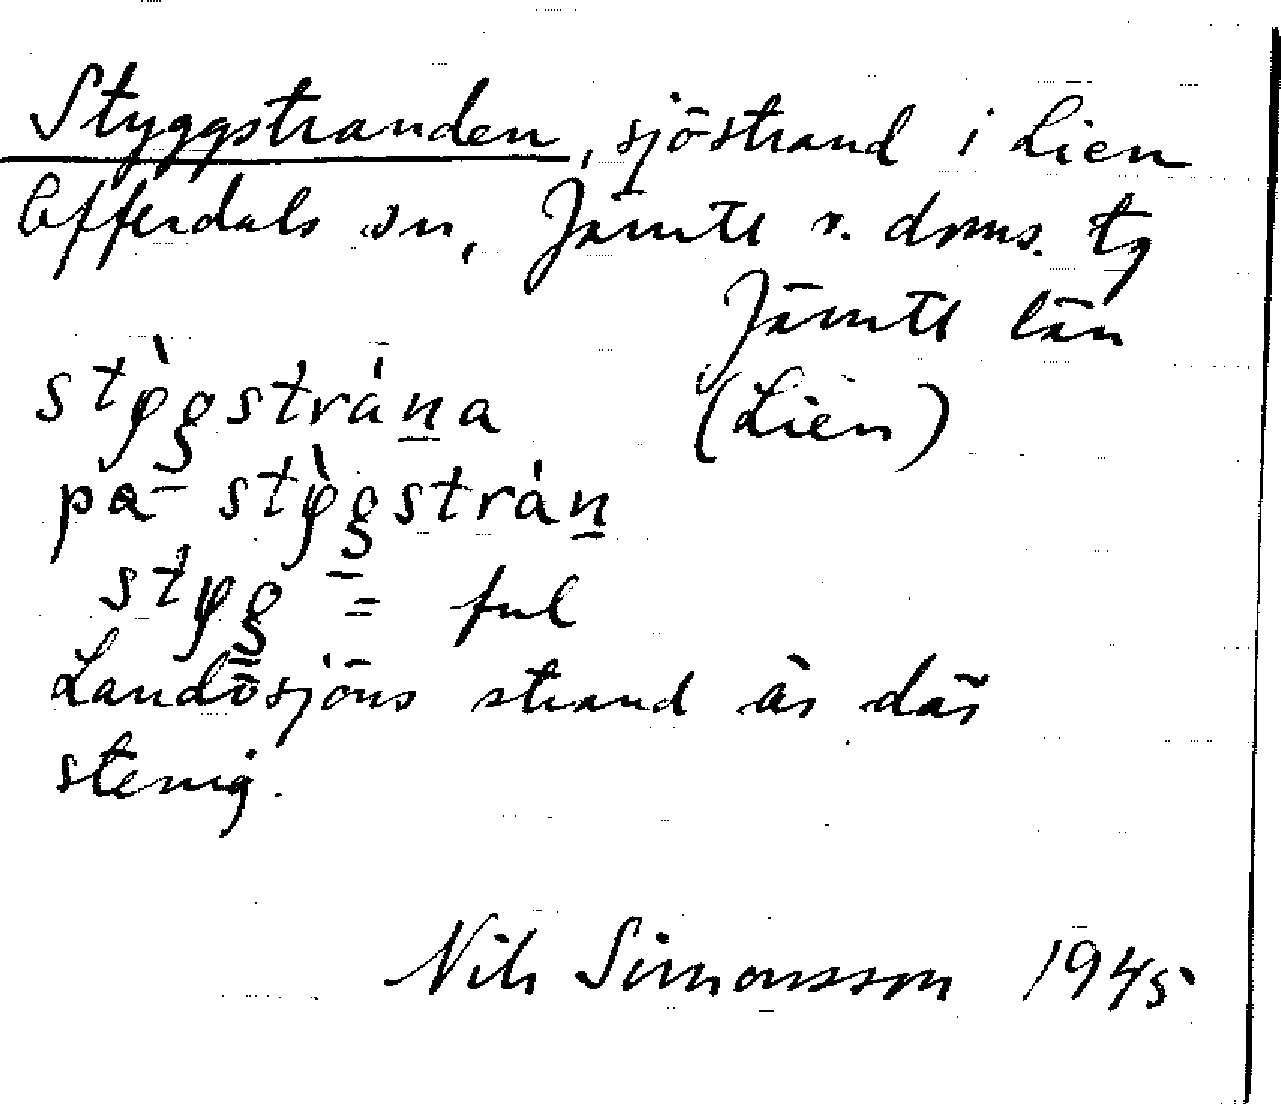 Styggstranden, sjöstrand i Lien
Offerdals sn, Jämtl n. doms. tg
Jämtl län
stỳgstrána (Lien)
pa- stỳgstrán
styg = ful
Landösjöns strand är där
stenig.
Nils Simonsson 1945